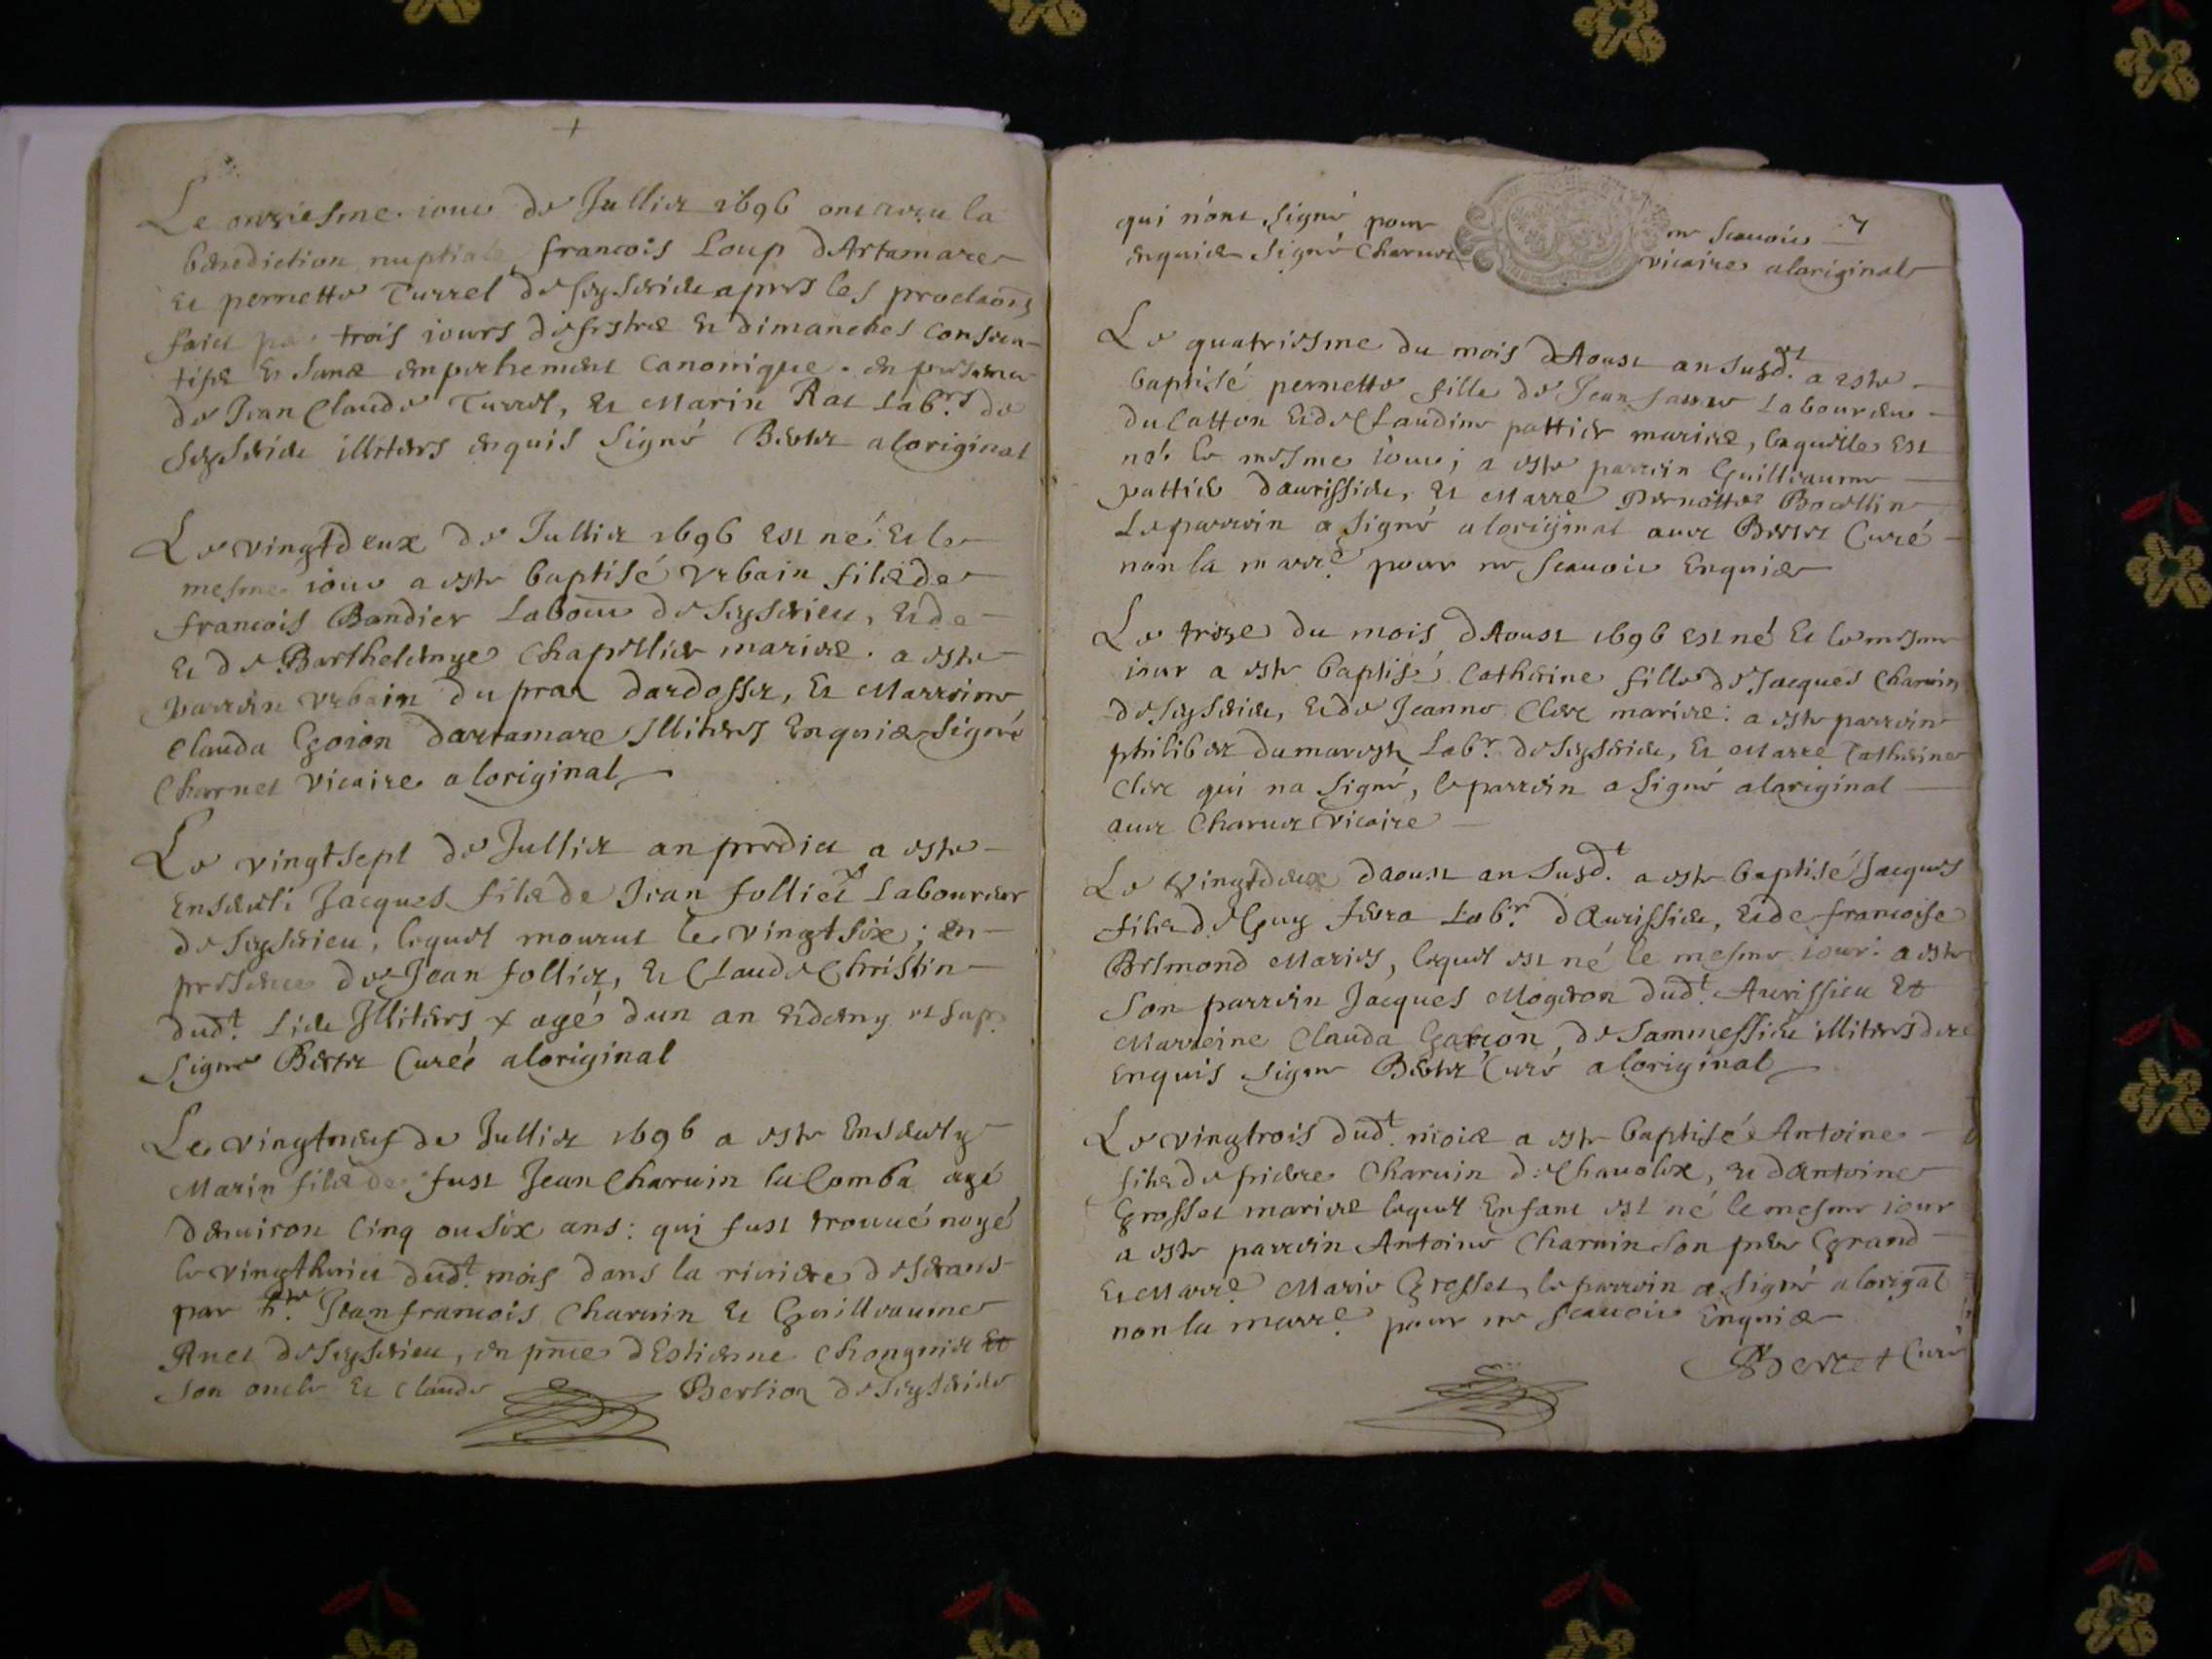 Le onziesme iour de Jullier 1696 ont receu la
benediction nuptiale francois Loup dArtamare
et pernette Turrel de seyserieu apres les proclaons
fait par trois iours de festes et dimanches consecu-
tifs et sans empeschement canonique. en presence
de Jean Claude Turrel, et Marin Rat Labrs de
seyserieu illiters enquis Signé Bertet aloriginal
Le vingtdeux de Jullier 1696 est né et le
mesme iour a este baptisé Vrbain fils de
francois Bandier Labour de seyserieu, et de
et de Barthelemye Chapellier mariez. a este
parrein Vrbain du praz dardosset, et Marreine
Clauda Goion dartamare Illiters Enquis Signé
Charuet Vicaire aloriginal
Le vingtsept de Jullier an predict a este
Enseveli Jacques fils de Jean folliet Labourer
de Seyserieu, lequel mourut le vingt six; en
presence de Jean folliet, et Claude Christin
dudt. Lieu Illiters x agé dun an et demy
Signé Bertet Curé aloriginal
Le vingtneuf de Jullier 1696 a este Ensevely
Marin fils de fust Jean Charuin la Comba agé
denuiron cinq ou six ans: qui fust trouué noyé
le vingthuict dudt. mois dans la riuiere de serans
par hte. Jean francois Charuin et Guilleaume
Anet de Seyserieu, en pnce dEstienne Chongnier et
son oncle et Claude Bertion de Seyserieu
qui nont Signé pour ne scauoir 7
enquis Signé Charuet vicaire aloriginal
Le quatriesme du mois dAoust an susdt. a este
baptisé pernette fille de Jean Laboureur
du Catton et de Claudine pattier mariez, laquelle est
née le mesme iour; a este parrein Guilleaume
pattier daurissieu, et Marre Pernette Boellin
Le parrein a signé aloriginal auec Bertet Curé
non la marre pour ne scauoir Enquis
Le treze du mois dAoust 1696 est né et le mesme
iour a este baptisé Catherine fille de Jacques Charuin
de Seyserieu, et de Jeanne Clerc mariez: a este parrein
philibert dumarest Labr. de Seyserieu, et Marre Catherine
Clerc qui na signé, le parrein a signé aloriginal
auec Charuet Vicaire
Le Vingtdeux daoust an Susdt. a este baptisé Jacques
fils de Guy Labr. dAurissieu, et de francoise
Belmond Mariés, lequel est né le mesme iour: a este
Son parrein Jacques Mogeron dudt. Aurissieu Et
Marreine Clauda Garçon, de Sammessieu illiters de ce
Enquis Signé Bertet Curé aloriginal
Le vingtrois dudt. mois a este baptisé Antoine
fils de pierre Charuin de Chauolex, et dAntoine
Grosset mariez lequel Enfant est né le mesme iour
a este parrein Antoine Charuin son pere Grand
et Marre Marie Grosset, le parrein a signé alorignal
non la marre pour ne scauoir Enquis
Bertet Curé